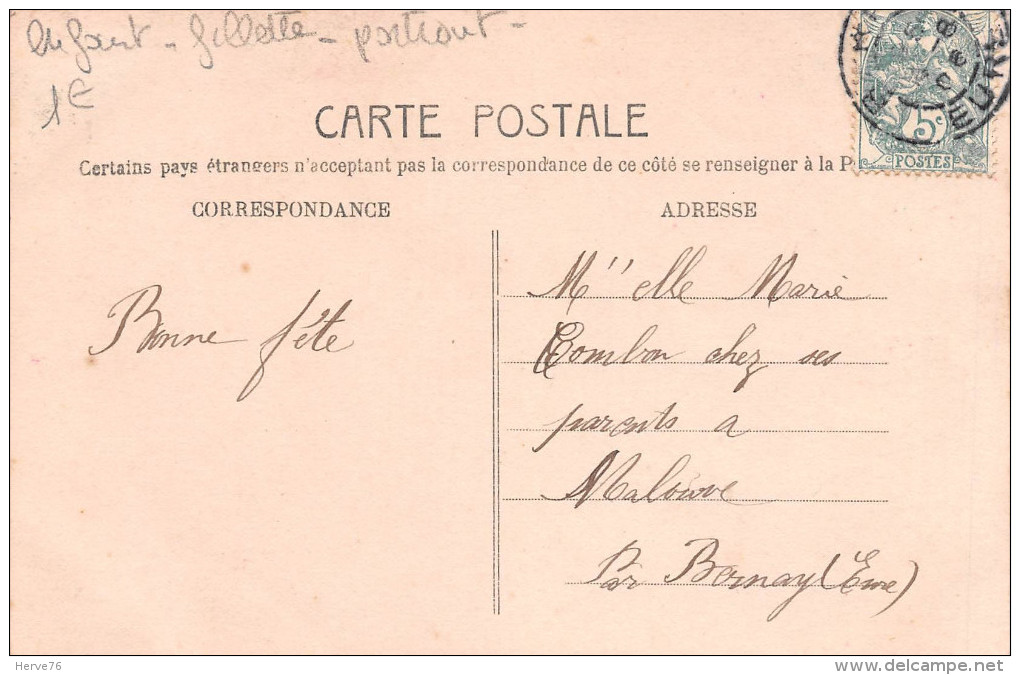 enfant - fillette - portrait -
1€
CARTE POSTALE
Certains pays étrangers n'acceptant pas la correspondance de ce côté se renseigner à la P
CORRESPONDANCE
ADRESSE
5c
POSTES
EURE
Bonne fête
M''elle Marie
Combon chez ses
parents a
Malouve
Par Bernay (Eure)
Herve76
www.delcampe.net